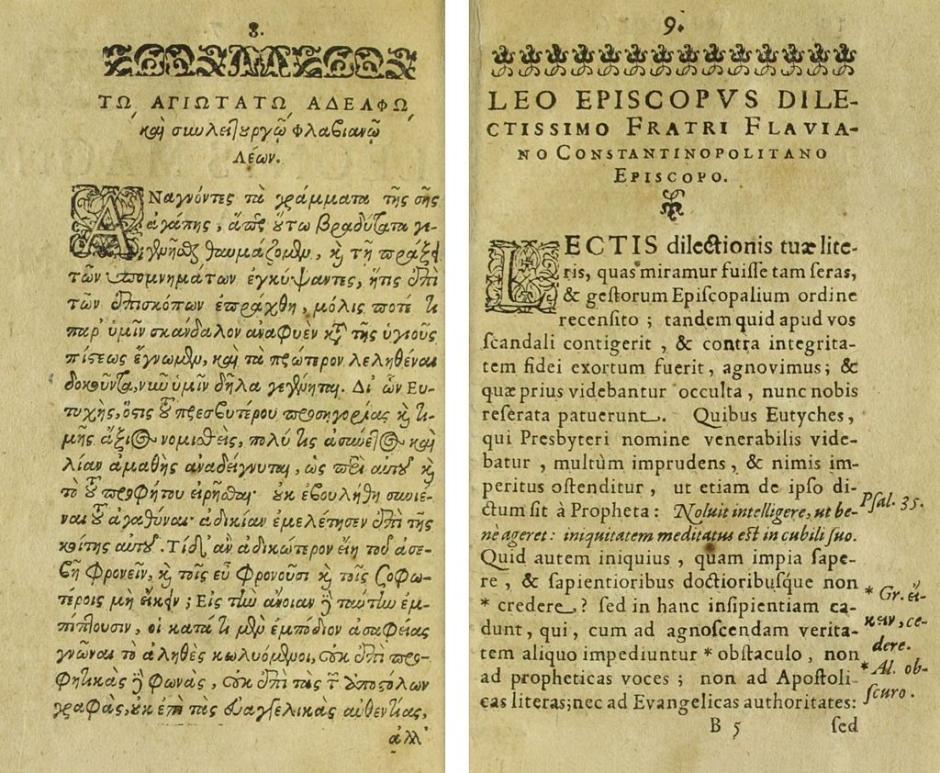 8.
ΤΩ ΑΓΙΩΤΑΤΩ ΑΔΕΛΦΩ
καὶ συλλειτουργῷ Φλαβιανῷ
Λέων.
ΑΝαγνόντες τὰ γράμματα τῆς σῆς
ἀγάπης, ἅτινα οὕτω βραδύτατα γε-
γενῆσθαι θαυμάζομεν, καὶ τῇ πράξει
τῶν ὑπομνημάτων ἐγκύψαντες, ἥτις ἐπὶ
τῶν ἐπισκόπων ἐπράχθη, μόλις ποτὲ τὸ
παρ' ὑμῖν σκάνδαλον ἀναφυὲν κατὰ τῆς ὑγιοῦς
πίστεως ἔγνωμεν, καὶ τὰ πρώτερον λεληθέναι
δοκοῦντα, νῦν ὑμῖν δῆλα γεγένηται. Δι' ὧν Εὐ-
τυχὴς, ὅστις τοῦ πρεσβυτέρου προσηγορίας καὶ τι-
μῆς ἄξιος νομισθεὶς, πολύ τις ἀσύνετος καὶ
λίαν ἀμαθὴς ἀναδείγνυται, ὡς περὶ αὐτοῦ καὶ
τὸ τοῦ προφήτου εἰρῆσθαι· οὐκ ἐβουλήθη συνιέ-
ναι τοῦ ἀγαθῦναι· ἀδικίαν ἐμελέτησεν ἐπὶ τῆς
κοίτης αὐτοῦ. Τί δ' ἂν ἀδικώτερον εἴη τοῦ ἀσε-
βῆ φρονεῖν, καὶ τοῖς εὖ φρονοῦσι καὶ τοῖς σοφω-
τέροις μὴ εἴκειν; Εἰς τὴν ἄνοιαν δὲ ταύτην ἐμ-
πίπτουσιν, οἱ κατά τι μὲν ἐμπόδιον ἀσαφείας
γνῶναι τὸ ἀληθὲς κωλυόμενοι, οὐκ ἐπὶ προ-
φητικὰς δὲ φωνας, οὐκ ἐπὶ τὰς τῶν Ἀποστόλων
γραφὰς, οὐκ ἐπὶ τὰς Εὐαγγελικὰς αὐθεντίας,
ἀλλ'
9.
LEO EPISCOPVS DILE-
CTISSIMO FRATRI FLAVIA-
NO CONSTANTINOPOLITANO
EPISCOPO.
LECTIS dilectionis tuæ lite-
ris, quas miramur fuiſſe tam ſeras,
& geſtorum Epiſcopalium ordine
recenſito ; tandem quid apud vos
ſcandali contigerit , & contra integrita-
tem fidei exortum fuerit, agnovimus; &
quæ prius videbantur occulta , nunc nobis
reſerata patuerunt. Quibus Eutyches,
qui Presbyteri nomine venerabilis vide-
batur , multùm imprudens, & nimis im-
peritus oſtenditur , ut etiam de ipſo di-
ctum ſit à Propheta : Noluit intelligere, ut be- Pſal. 35.
nè ageret: iniquitatem meditatus eſt in cubili ſuo.
Quid autem iniquius , quam impia ſape-
re , & ſapientioribus doctioribuſque non
* credere ? ſed in hanc inſipientiam ca- * Gr. εἴ-
dunt, qui , cum ad agnoſcendam verita- κειν, ce-
tem aliquo impediuntur * obſtaculo , non dere.
ad propheticas voces ; non ad Apoſtoli- * Al. ob-
cas literas; nec ad Evangelicas authoritates: ſcuro.
B 5 ſed